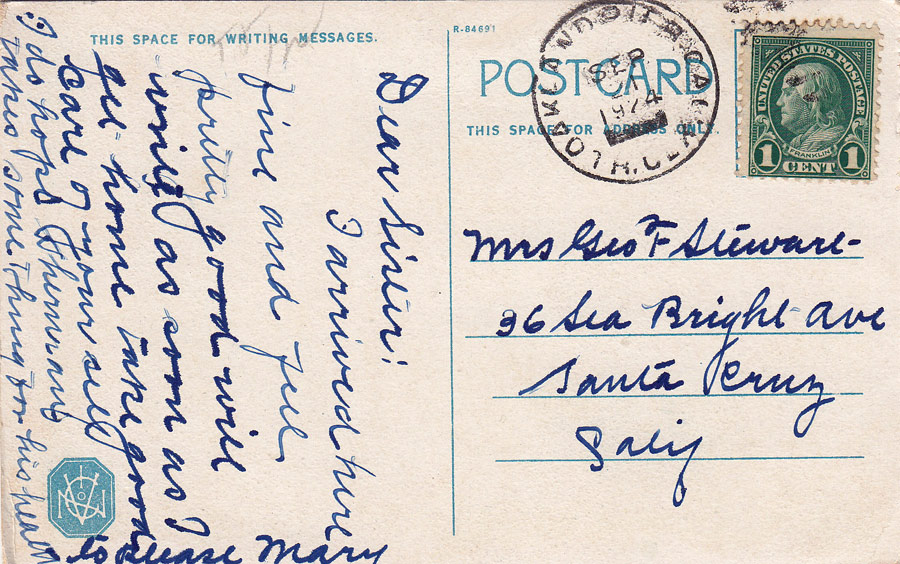 THIS SPACE FOR WRITING MESSAGES.
Dear Sister!
I arrived here
fine and feel
pretty good will
write as soon as I
get home take good
care of yourself
I do hope
takes something for his
to please Mary
R-84691
POST CARD
THIS SPACE FOR ADDRESS ONLY.
OAKLAND CAL
SEP
1924
UNITED STATES POSTAGE
FRANKLIN
1 CENT 1
Mrs Geo F Stewart
36 Sea Bright Ave
Santa Cruz
Calif